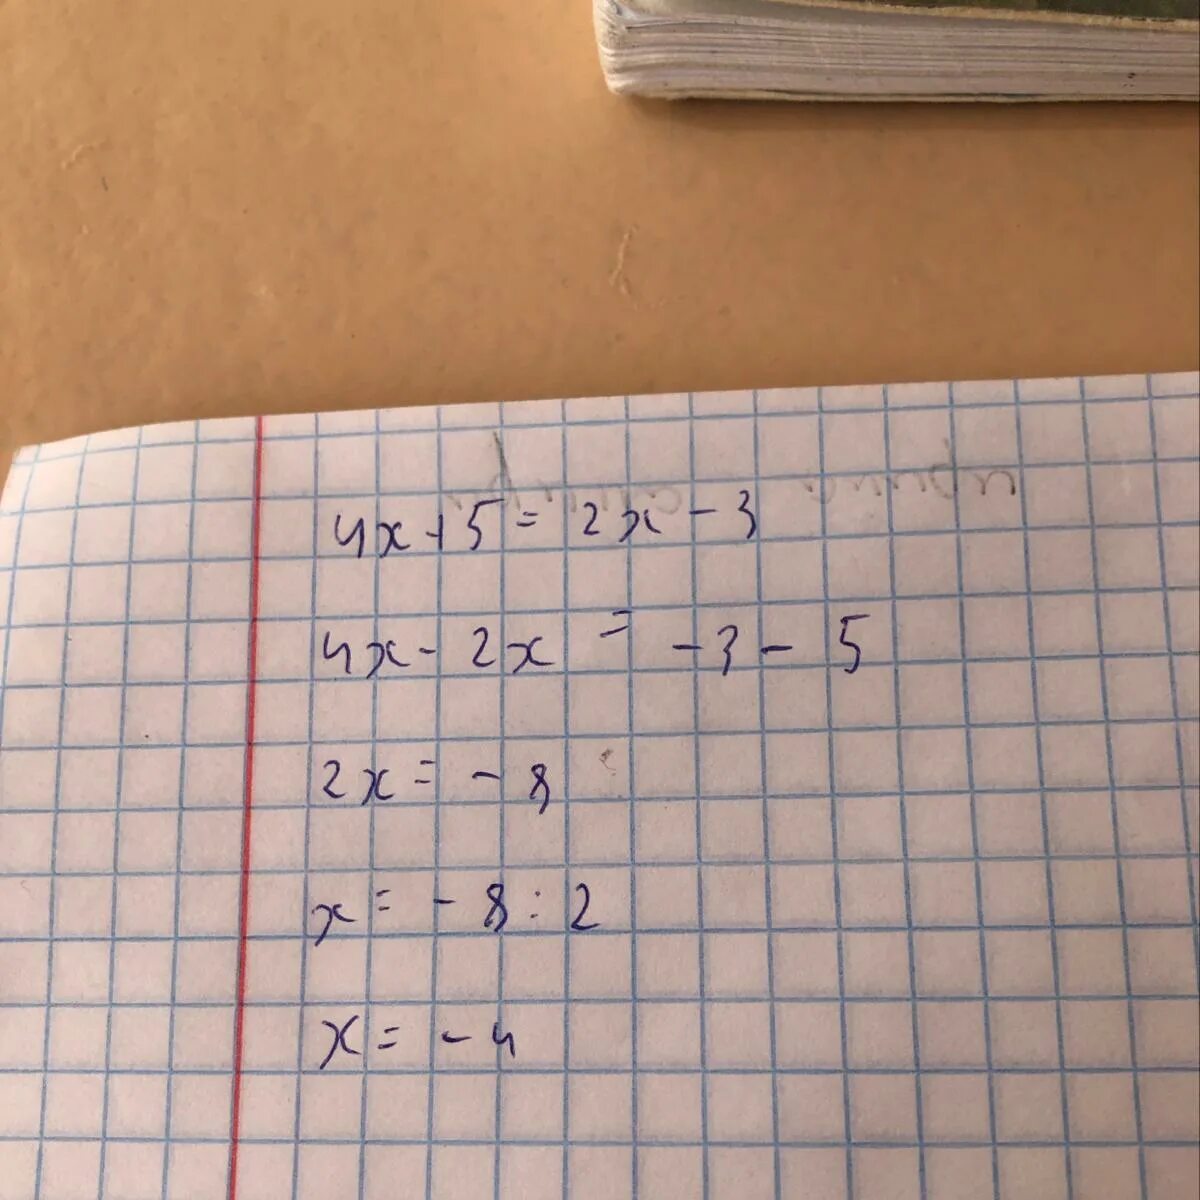 4x+5=2x-3
4x-2x=-3-5
2x=-8
x=-8:2
x=-4